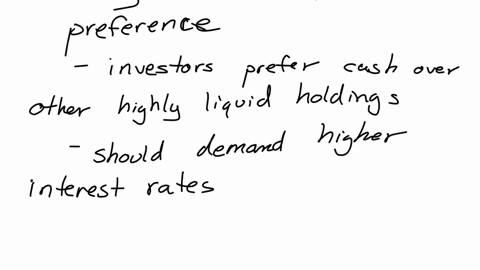 preference
- investors prefer cash over
other highly liquid holdings
- should demand higher
interest rates